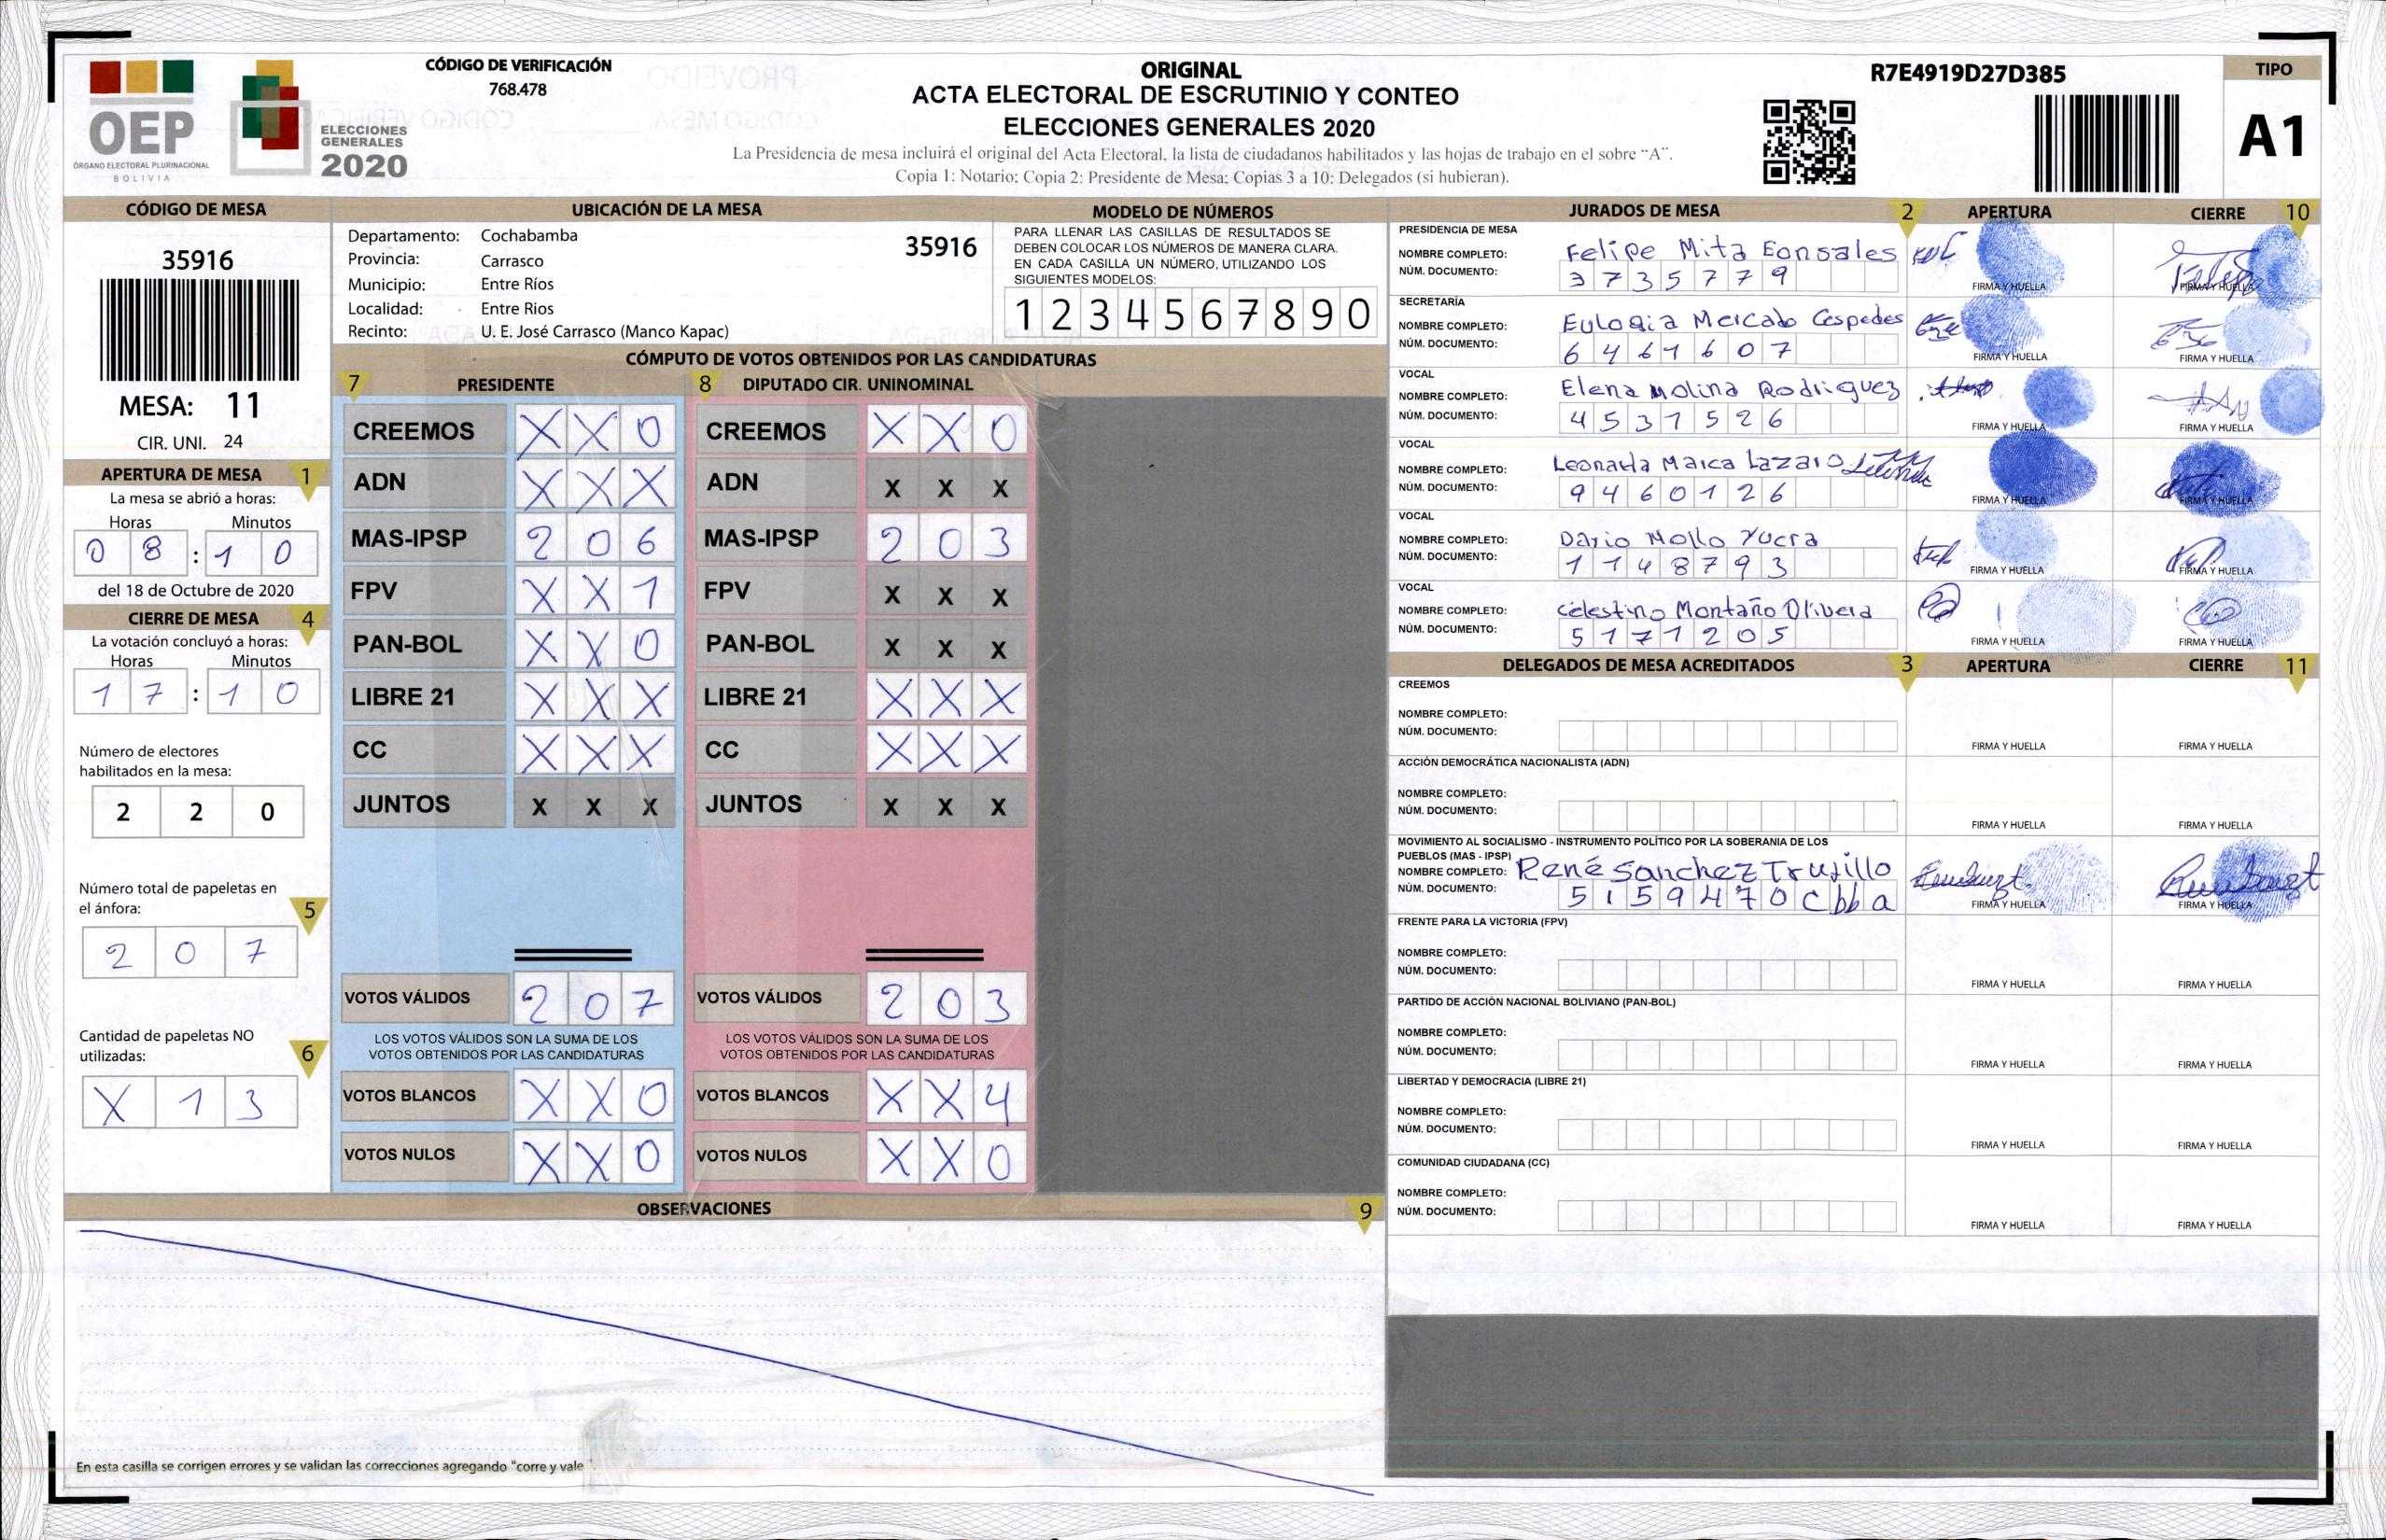 CÓDIGO DE VERIFICACIÓN
768.478
OEP
ÓRGANO ELECTORAL PLURINACIONAL
BOLIVIA
ELECCIONES
GENERALES
2020
ORIGINAL
ACTA ELECTORAL DE ESCRUTINIO Y CONTEO
ELECCIONES GENERALES 2020
La Presidencia de mesa incluirá el original del Acta Electoral, la lista de ciudadanos habilitados y las hojas de trabajo en el sobre "A".
Copia 1: Notario; Copia 2: Presidente de Mesa; Copias 3 a 10: Delegados (si hubieran).
R7E4919D27D385
TIPO
A1
CÓDIGO DE MESA
35916
MESA: 11
CIR. UNI. 24
APERTURA DE MESA 1
La mesa se abrió a horas:
Horas Minutos
0 8 : 1 0
del 18 de Octubre de 2020
CIERRE DE MESA 4
La votación concluyó a horas:
Horas Minutos
1 7 : 1 0
Número de electores
habilitados en la mesa:
2 2 0
Número total de papeletas en
el ánfora: 5
2 0 7
Cantidad de papeletas NO
utilizadas: 6
X 1 3
UBICACIÓN DE LA MESA
Departamento: Cochabamba 35916
Provincia: Carrasco
Municipio: Entre Ríos
Localidad: Entre Rios
Recinto: U. E. José Carrasco (Manco Kapac)
MODELO DE NÚMEROS
PARA LLENAR LAS CASILLAS DE RESULTADOS SE
DEBEN COLOCAR LOS NÚMEROS DE MANERA CLARA.
EN CADA CASILLA UN NÚMERO, UTILIZANDO LOS
SIGUIENTES MODELOS:
1 2 3 4 5 6 7 8 9 0
CÓMPUTO DE VOTOS OBTENIDOS POR LAS CANDIDATURAS
7 PRESIDENTE
CREEMOS X X 0
ADN X X X
MAS-IPSP 2 0 6
FPV X X 1
PAN-BOL X X 0
LIBRE 21 X X X
CC X X X
JUNTOS X X X
VOTOS VÁLIDOS 2 0 7
LOS VOTOS VÁLIDOS SON LA SUMA DE LOS
VOTOS OBTENIDOS POR LAS CANDIDATURAS
VOTOS BLANCOS X X 0
VOTOS NULOS X X 0
8 DIPUTADO CIR. UNINOMINAL
CREEMOS X X 0
ADN X X X
MAS-IPSP 2 0 3
FPV X X X
PAN-BOL X X X
LIBRE 21 X X X
CC X X X
JUNTOS X X X
VOTOS VÁLIDOS 2 0 3
LOS VOTOS VÁLIDOS SON LA SUMA DE LOS
VOTOS OBTENIDOS POR LAS CANDIDATURAS
VOTOS BLANCOS X X 4
VOTOS NULOS X X 0
OBSERVACIONES 9
En esta casilla se corrigen errores y se validan las correcciones agregando "corre y vale
JURADOS DE MESA 2 APERTURA CIERRE 10
PRESIDENCIA DE MESA
NOMBRE COMPLETO: Felipe Mita Eonsales
NÚM. DOCUMENTO: 3 7 3 5 7 7 9
FIRMA Y HUELLA FIRMA Y HUELLA
SECRETARÍA
NOMBRE COMPLETO: Eulogia Mercado Cespedes
NÚM. DOCUMENTO: 6 4 6 1 6 0 7
FIRMA Y HUELLA FIRMA Y HUELLA
VOCAL
NOMBRE COMPLETO: Elena Molina Rodriguez
NÚM. DOCUMENTO: 4 5 3 1 5 2 6
FIRMA Y HUELLA FIRMA Y HUELLA
VOCAL
NOMBRE COMPLETO: Leonarda Marca Lazaro
NÚM. DOCUMENTO: 9 4 6 0 1 2 6
FIRMA Y HUELLA FIRMA Y HUELLA
VOCAL
NOMBRE COMPLETO: Dario Mollo Yucra
NÚM. DOCUMENTO: 1 1 4 8 7 9 3
FIRMA Y HUELLA FIRMA Y HUELLA
VOCAL
NOMBRE COMPLETO: Celestino Montaño Olivera
NÚM. DOCUMENTO: 5 1 7 1 2 0 5
FIRMA Y HUELLA FIRMA Y HUELLA
DELEGADOS DE MESA ACREDITADOS 3 APERTURA CIERRE 11
CREEMOS
NOMBRE COMPLETO:
NÚM. DOCUMENTO:
FIRMA Y HUELLA FIRMA Y HUELLA
ACCIÓN DEMOCRÁTICA NACIONALISTA (ADN)
NOMBRE COMPLETO:
NÚM. DOCUMENTO:
FIRMA Y HUELLA FIRMA Y HUELLA
MOVIMIENTO AL SOCIALISMO - INSTRUMENTO POLÍTICO POR LA SOBERANIA DE LOS
PUEBLOS (MAS - IPSP)
NOMBRE COMPLETO: René Sanchez Trujillo
NÚM. DOCUMENTO: 5 1 5 9 4 7 0 C bb a
FIRMA Y HUELLA FIRMA Y HUELLA
FRENTE PARA LA VICTORIA (FPV)
NOMBRE COMPLETO:
NÚM. DOCUMENTO:
FIRMA Y HUELLA FIRMA Y HUELLA
PARTIDO DE ACCIÓN NACIONAL BOLIVIANO (PAN-BOL)
NOMBRE COMPLETO:
NÚM. DOCUMENTO:
FIRMA Y HUELLA FIRMA Y HUELLA
LIBERTAD Y DEMOCRACIA (LIBRE 21)
NOMBRE COMPLETO:
NÚM. DOCUMENTO:
FIRMA Y HUELLA FIRMA Y HUELLA
COMUNIDAD CIUDADANA (CC)
NOMBRE COMPLETO:
NÚM. DOCUMENTO:
FIRMA Y HUELLA FIRMA Y HUELLA